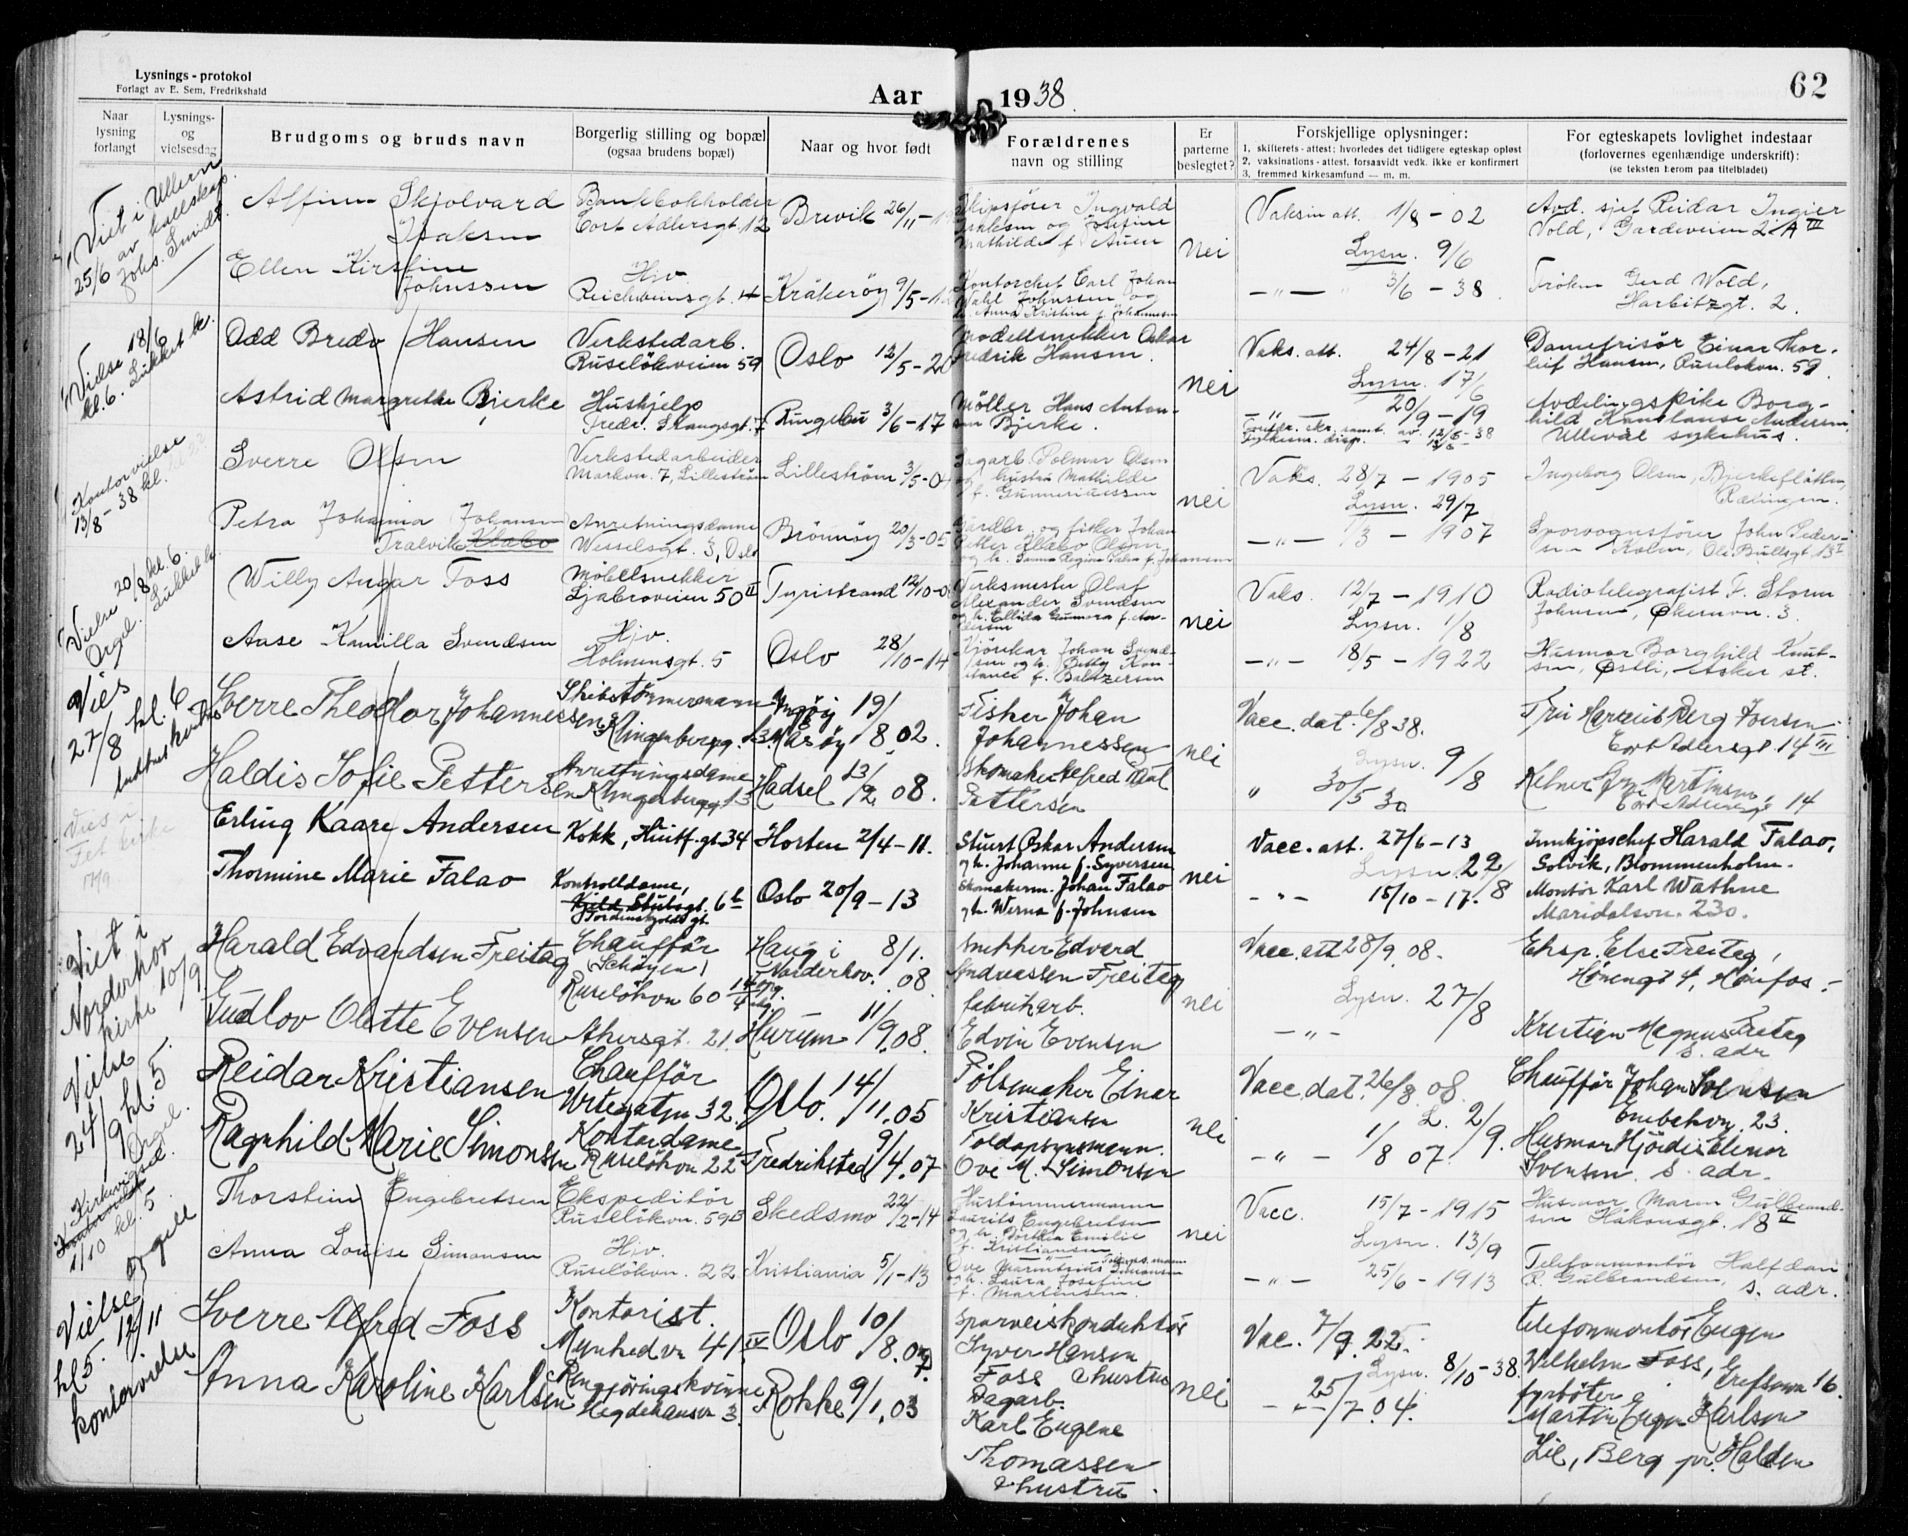 Lysnings-protokol
Forlagt av E. Sem, Fredrikshald
Aar 1938.
62
Naar lysning forlangt
Lysnings- og vielsesdag
Brudgoms og bruds navn
Borgerlig stilling og bopæl
(ogsaa brudens bopæl)
Naar og hvor født
Forældrenes
navn og stilling
Er parterne beslegtet?
Forskjellige oplysninger:
1. skifterets-attest: hvorledes det tidligere egteskap opløst
2. vaksinations-attest, forsaavidt vedk. ikke er konfirmert
3. fremmed kirkesamfund — m. m.
For egteskapets lovlighet indestaar
(forlovernes egenhændige underskrift):
(se teksten herom paa titelbladet)
Viet i Ullern
25/6 av
Johs. Smidt.
Alfinn Skjolvard
Isaksen
Bankbokholder
Cort Adlersgt. 12
Brevik 26/11 -
Skipsfører Ingvald
Isaksen og Josefine
Mathilde f.
nei
Vaksin att. 1/8 - 02
Lysn. 9/6
Avd. sjef Reidar Ingier
Vold, Gardeveien 2 A III
Ellen Kirstine
Johnssen
Hjv.
Reichweinsgt. 4
Kråkerøy 9/5 - 12
Kontorchef Carl Johan
Wahl Johnssen og
h. Anna Kristine f. Johannesen
— " — 3/6 - 38
Frøken Gerd Wold,
Harbitzgt. 2.
Vielse 18/6
kl. 6. Lukket k.
Odd Bredo Hansen
Verkstedarb.
Ruseløkveien 59
Oslo 12/5 - 20
Modellsnekker Oskar
Fredrik Hansen.
nei
Vaks. att. 24/8 - 21
Lysn. 17/6
Damefrisør Einar Thor-
leif Hansen, Ruseløkvn. 59.
Astrid Margrethe Bjerke
Huskjelp
Fredr. Stangsgt. 7
Ringebu 3/6 - 17
Møller Hans Anton-
sen Bjerke.
— " — 20/9 - 19
Avdelingspike Borg-
hild Konstanse Andersen,
Ullevål sykehus.
Kontorvielse
13/8 - 38 kl.
Sverre Olsen
Verkstedarbeider
Markvn. 7, Lillestrøm
Lillestrøm 3/5 - 04
Dagarb. Polmar Olsen
og hustru Mathilde
f. Gunneriussen
nei
Vaks. 28/7 - 1905
Lysn. 29/7
Ingeborg Olsen, Bjerkeflåtten,
Rælingen.
Petra Johanna Johansen
Tralvik
Anretningsdame
Wesselsgt. 3, Oslo
Brønnøy 20/3 - 05
Gårdbr. og fisker Johan
Petter Olsen
— " — 1/3 - 1907
Sporvognsfører John Peder-
sen Holm, Ole Bullsgt. 13 I
Vielse 20/8 kl. 6.
Orgel. Lukket k.
Willy Angar Foss
Møbelsnekker
Ljabroveien 50 II
Tyristrand 12/10 - 0
Verksmester Olaf
Alexander Svendsen
og h. Ellida Gunvora f. An-
dersen
nei
Vaks. 12/7 - 1910
Lysn. 1/8
Radiotelegrafist F. Storm
Johnsen, Økernvn. 3.
Aase Kamilla Svendsen
Hjv.
Holmensgt. 5
Oslo 28/10 - 14
Kjørekar Johan Svend-
sen og h. Betty Kon-
stance f. Baltzersen
— " — 18/5 - 1922
Husmor Borghild Knut-
sen, Østli, Asker st.
Vies
27/8 kl. 6
Sverre Theodor Johannessen
Skibstømmermann
Klingenberggt. 13
Ingøy 19/
Måsøy 8.02.
Fisker Johan
Johannessen
nei
Vacc. dat. 6/8 38.
Lysn. 9/8
Fru Harriet Berg Iversen
Cort Adlersgt. 14 III
Haldis Sofie Pettersen
Anretningsdame
Klingenberggt 13
Hadsel 13/2 08.
Skomaker Alfred
Pettersen
" 30/5 30
Kelner
Cort Adlersgt 14
Vies i
Fet kirke
17/9.
Erling Kaare Andersen
Kokk, Huitf. gt. 34
Horten 2/4 - 11.
Stuert Oskar Andersen
og h. Johanne f. Syversen
nei
Vacc. att. 27/6 - 13
Lysn. 22/8
Innkjøpschef Harald Falao,
Solvik, Blommenholm.
Thormine Marie Falao
Kontrolldame,
Tordenskjolds gt.
Oslo 20/9 - 13
Skomakerm. Johan Falao
og h. Werna f. Johnsen
— " — 15/10 - 17.
Montør Karl Wathne
Maridalsvn. 230.
Viet i
Norderhov
kirke 10/9
Harald Edvardsen Freitag
Chauffør
(Schøyen)
Ruseløkvn 60
Haug i 8/1.
Norderhov. 08.
Snekker Edvard
Andreassen Freitag
nei
Vacc. att 28/9. 08.
Lysn. 27/8
Eksp. Else Freitag,
Hønengt 4, Hønefos.
Gudlov Olette Evensen
Akersgt. 21.
Hurum 11/9.08.
fabrikarb.
Edvin Evensen
— " —
Kristian Magnus Freitag
s. adr
Vielse
24/9 kl. 5
Orgel.
Reidar Kristiansen
Chauffør
Urtegaten 32.
Oslo. 14/11.05
Pølsemaker Einar
Kristiansen
nei
Vacc. dat. 26/8. 08.
L. 2/9.
Chauffør Johan Svensen
Enebakvn. 23.
Ragnhild Marie Simonsen
Kontordame
Ruseløkvn 22
Fredrikstad 9/4.07
Toldopsynsmann.
Ove M. Simonsen
— " — 1/8 07.
Husmor Hjørdis Elenor
Svensen. s. adr.
Kirkevielse
1/10 kl. 5
orgell
Thorstein Engebretsen
Ekspeditør
Ruseløkvn. 59B
Skedsmo 22/2 - 14
Hustømmermann
Laurits Engebretsen
og h. Dorthea Emilie
f. Kristiansen
nei
Vacc. 15/7 - 1915
Lysn. 13/9
Husmor Maren Gulbrand-
sen Håkonsgt. 18 II
Anna Louise Simonsen
Hjv.
Ruseløkvn. 22
Kristiania 5/1 - 13
Ove Marentius Simonsen
og h. Laura Josefine
f. Martinsen.
— " — 25/6 - 1913
Telefonmontør Halfdan
R. Gulbrandsen, s. adr.
Vielse
kl 5. 12/11
kontorvielse
Sverre Alfred Foss
Kontorist.
Oslo 10/8. 07
Sporveiskonduktør
Syver Hansen
Foss & hustru
nei
Vac. 7/9. 22.
Lysn. 8/10 - 38.
telefonmontør Eugen
Wilhelm Foss, Grefsenvn 16.
Anna Karoline Karlsen
Rengjøringskvinne
Hegdehausvn 3
Rokke 9/1. 03
Dagarb.
Karl Eugene
Thomassen
& hustru.
— " — 25/7. 04.
fyrbøter
Martin Eugen Karlsen
Lie, Berg pr. Halden